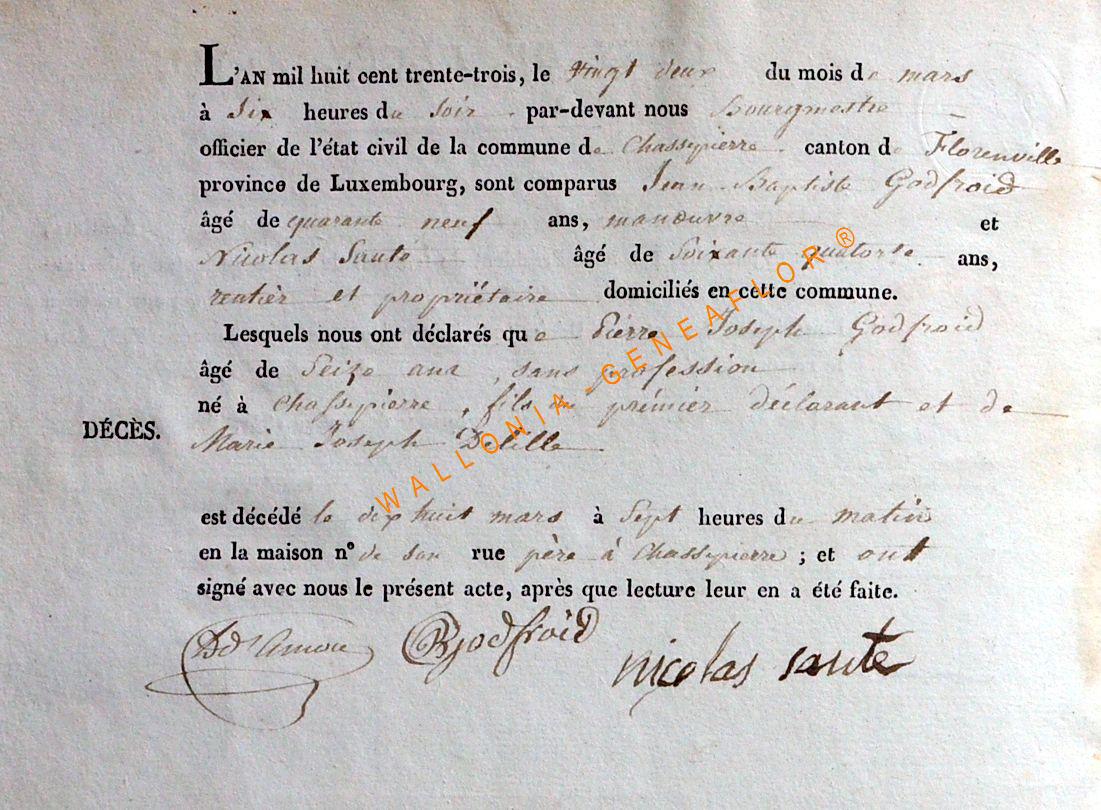 L'AN mil huit cent trente-trois, le vingt deux du mois de mars
à Six heures du soir par-devant nous Bourgmestre
officier de l'état civil de la commune de Chassepierre canton de Florenville
province de Luxembourg, sont comparus Jean Baptiste Godfroid
âgé de quarante neuf ans, manœuvre et
Nicolas Sauté âgé de Soixante quatorse ans,
rentier et propriétaire domiciliés en cette commune.
Lesquels nous ont déclarés que Pierre Joseph Godfroid
âgé de Seize ans, sans profession
né à Chassepierre, fils du prémier déclarant et de
DÉCÈS.
Marie Joseph Delille
est décédé le dix huit mars à Sept heures du matin
en la maison n° de son rue père à Chassepierre ; et ont
signé avec nous le présent acte, après que lecture leur en a été faite.
godfroid
nicolas saute
WALLONIA-GENEAFLOR ®